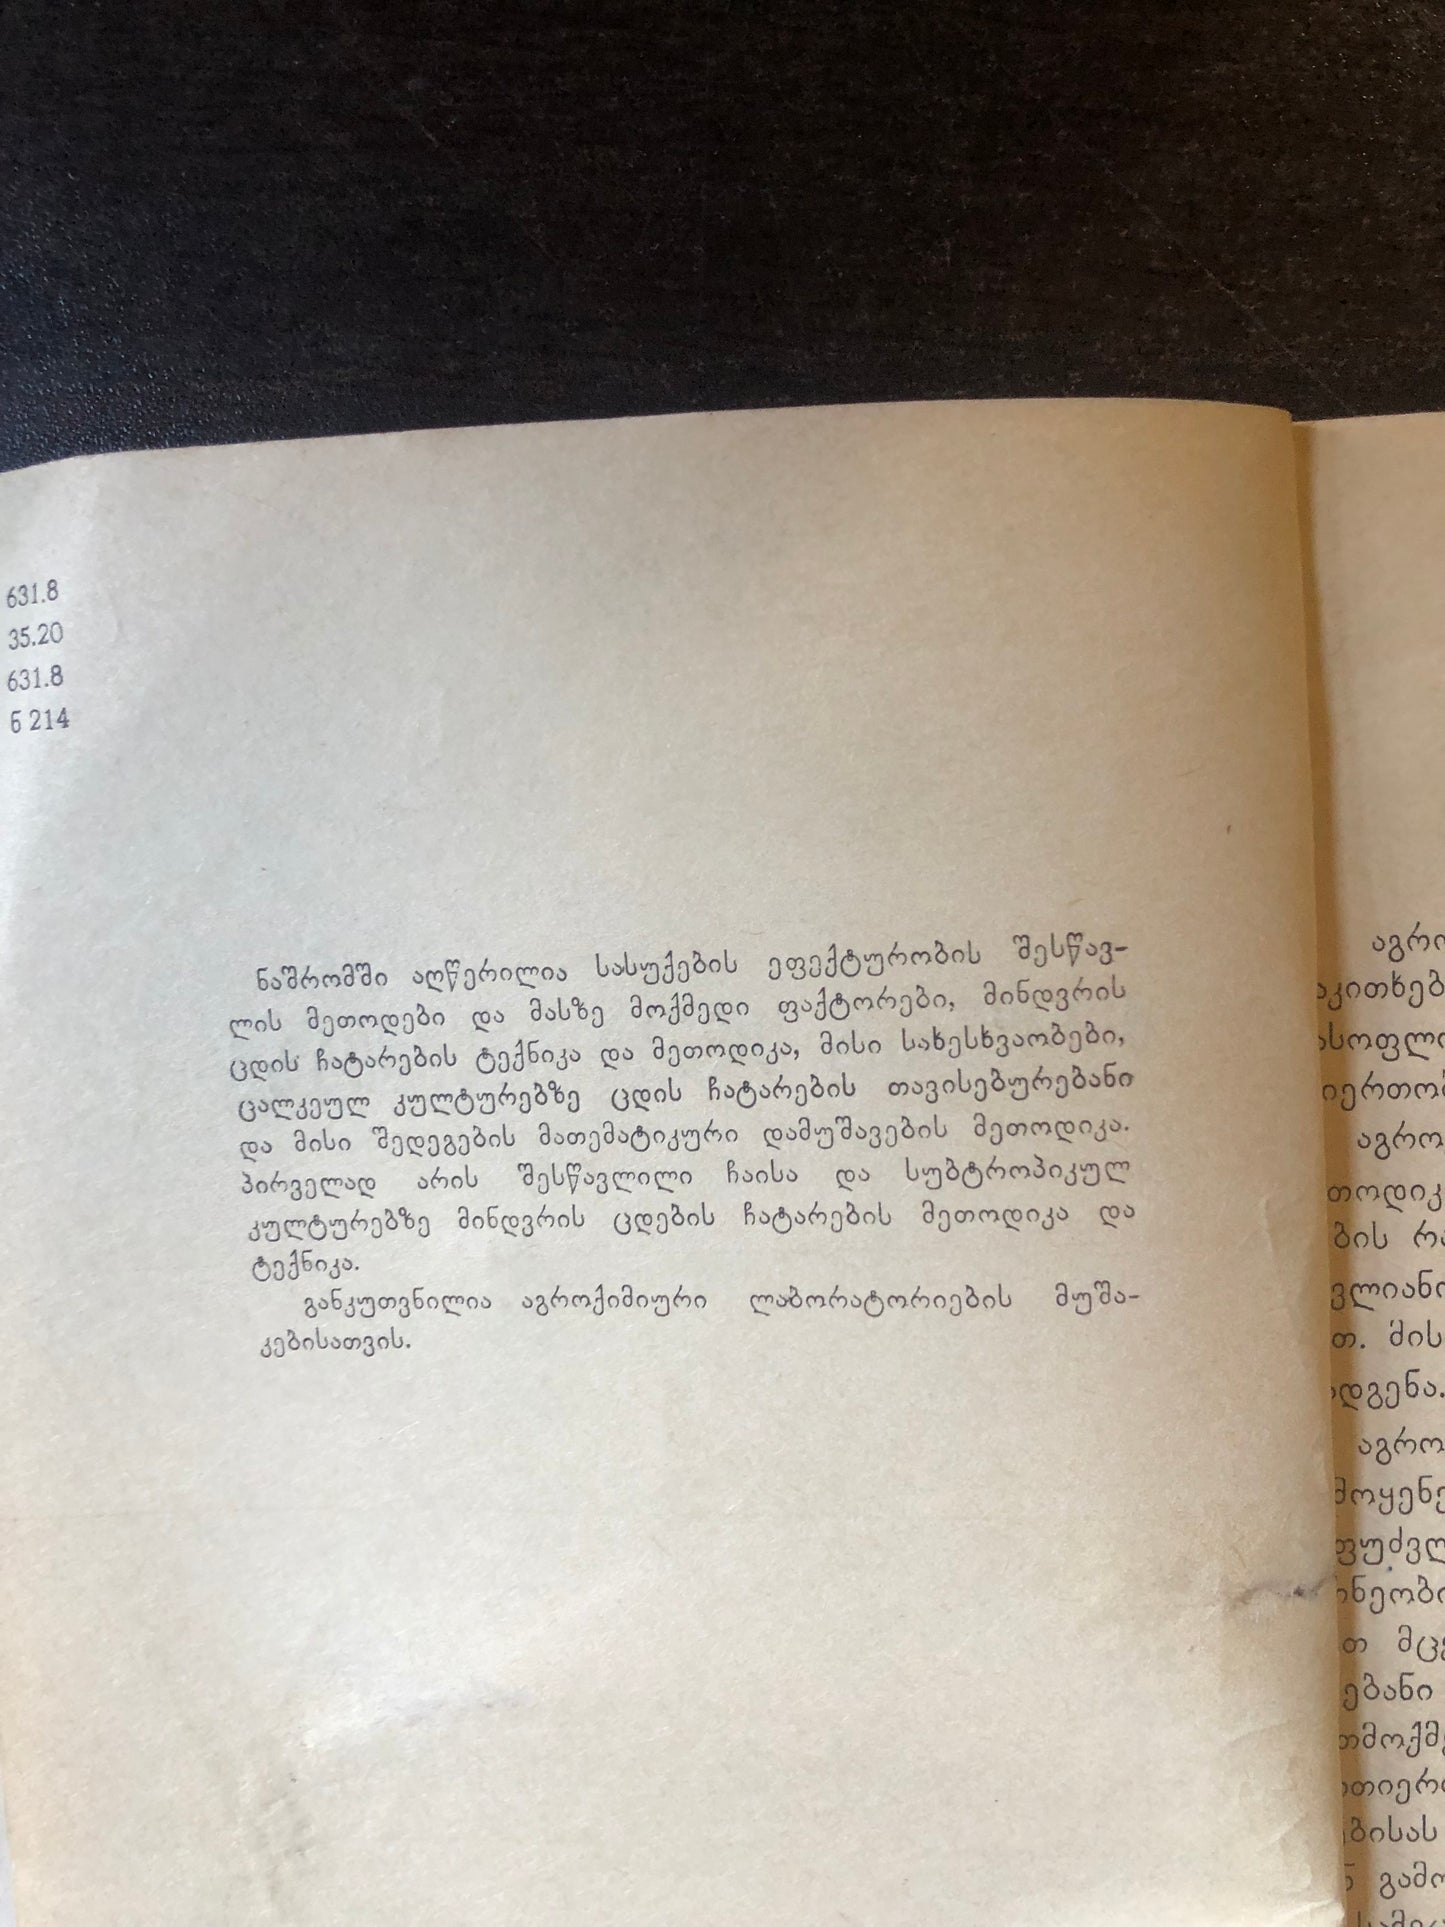 631.8
35.20
631.8
ნ 214
ნაშრომში აღწერილია სასუქების ეფექტურობის შესწავ-
ლის მეთოდები და მასზე მოქმედი ფაქტორები, მინდვრის
ცდის ჩატარების ტექნიკა და მეთოდიკა, მისი სახესხვაობები,
ცალკეულ კულტურებზე ცდის ჩატარების თავისებურებანი
და მისი შედეგების მათემატიკური დამუშავების მეთოდიკა.
პირველად არის შესწავლილი ჩაისა და სუბტროპიკულ
კულტურებზე მინდვრის ცდების ჩატარების მეთოდიკა და
ტექნიკა.
განკუთვნილია აგროქიმიური ლაბორატორიების მუშა-
კებისათვის.